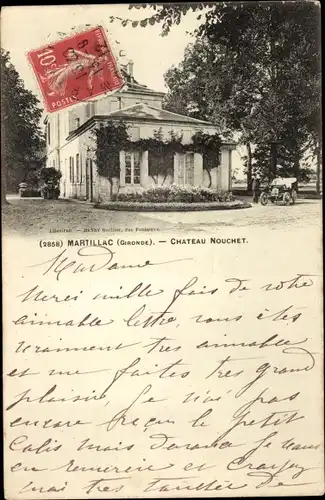 10c
POSTES
(2858) MARTILLAC (GIRONDE). — CHATEAU NOUCHET.
Madame
Merci mille fois de votre
aimable lettre, vous êtes
vraiment très aimable
et me faites très grand
plaisir, je n'ai pas
encore reçu le petit
Colis mais d'avance je vous
en remercie et
très